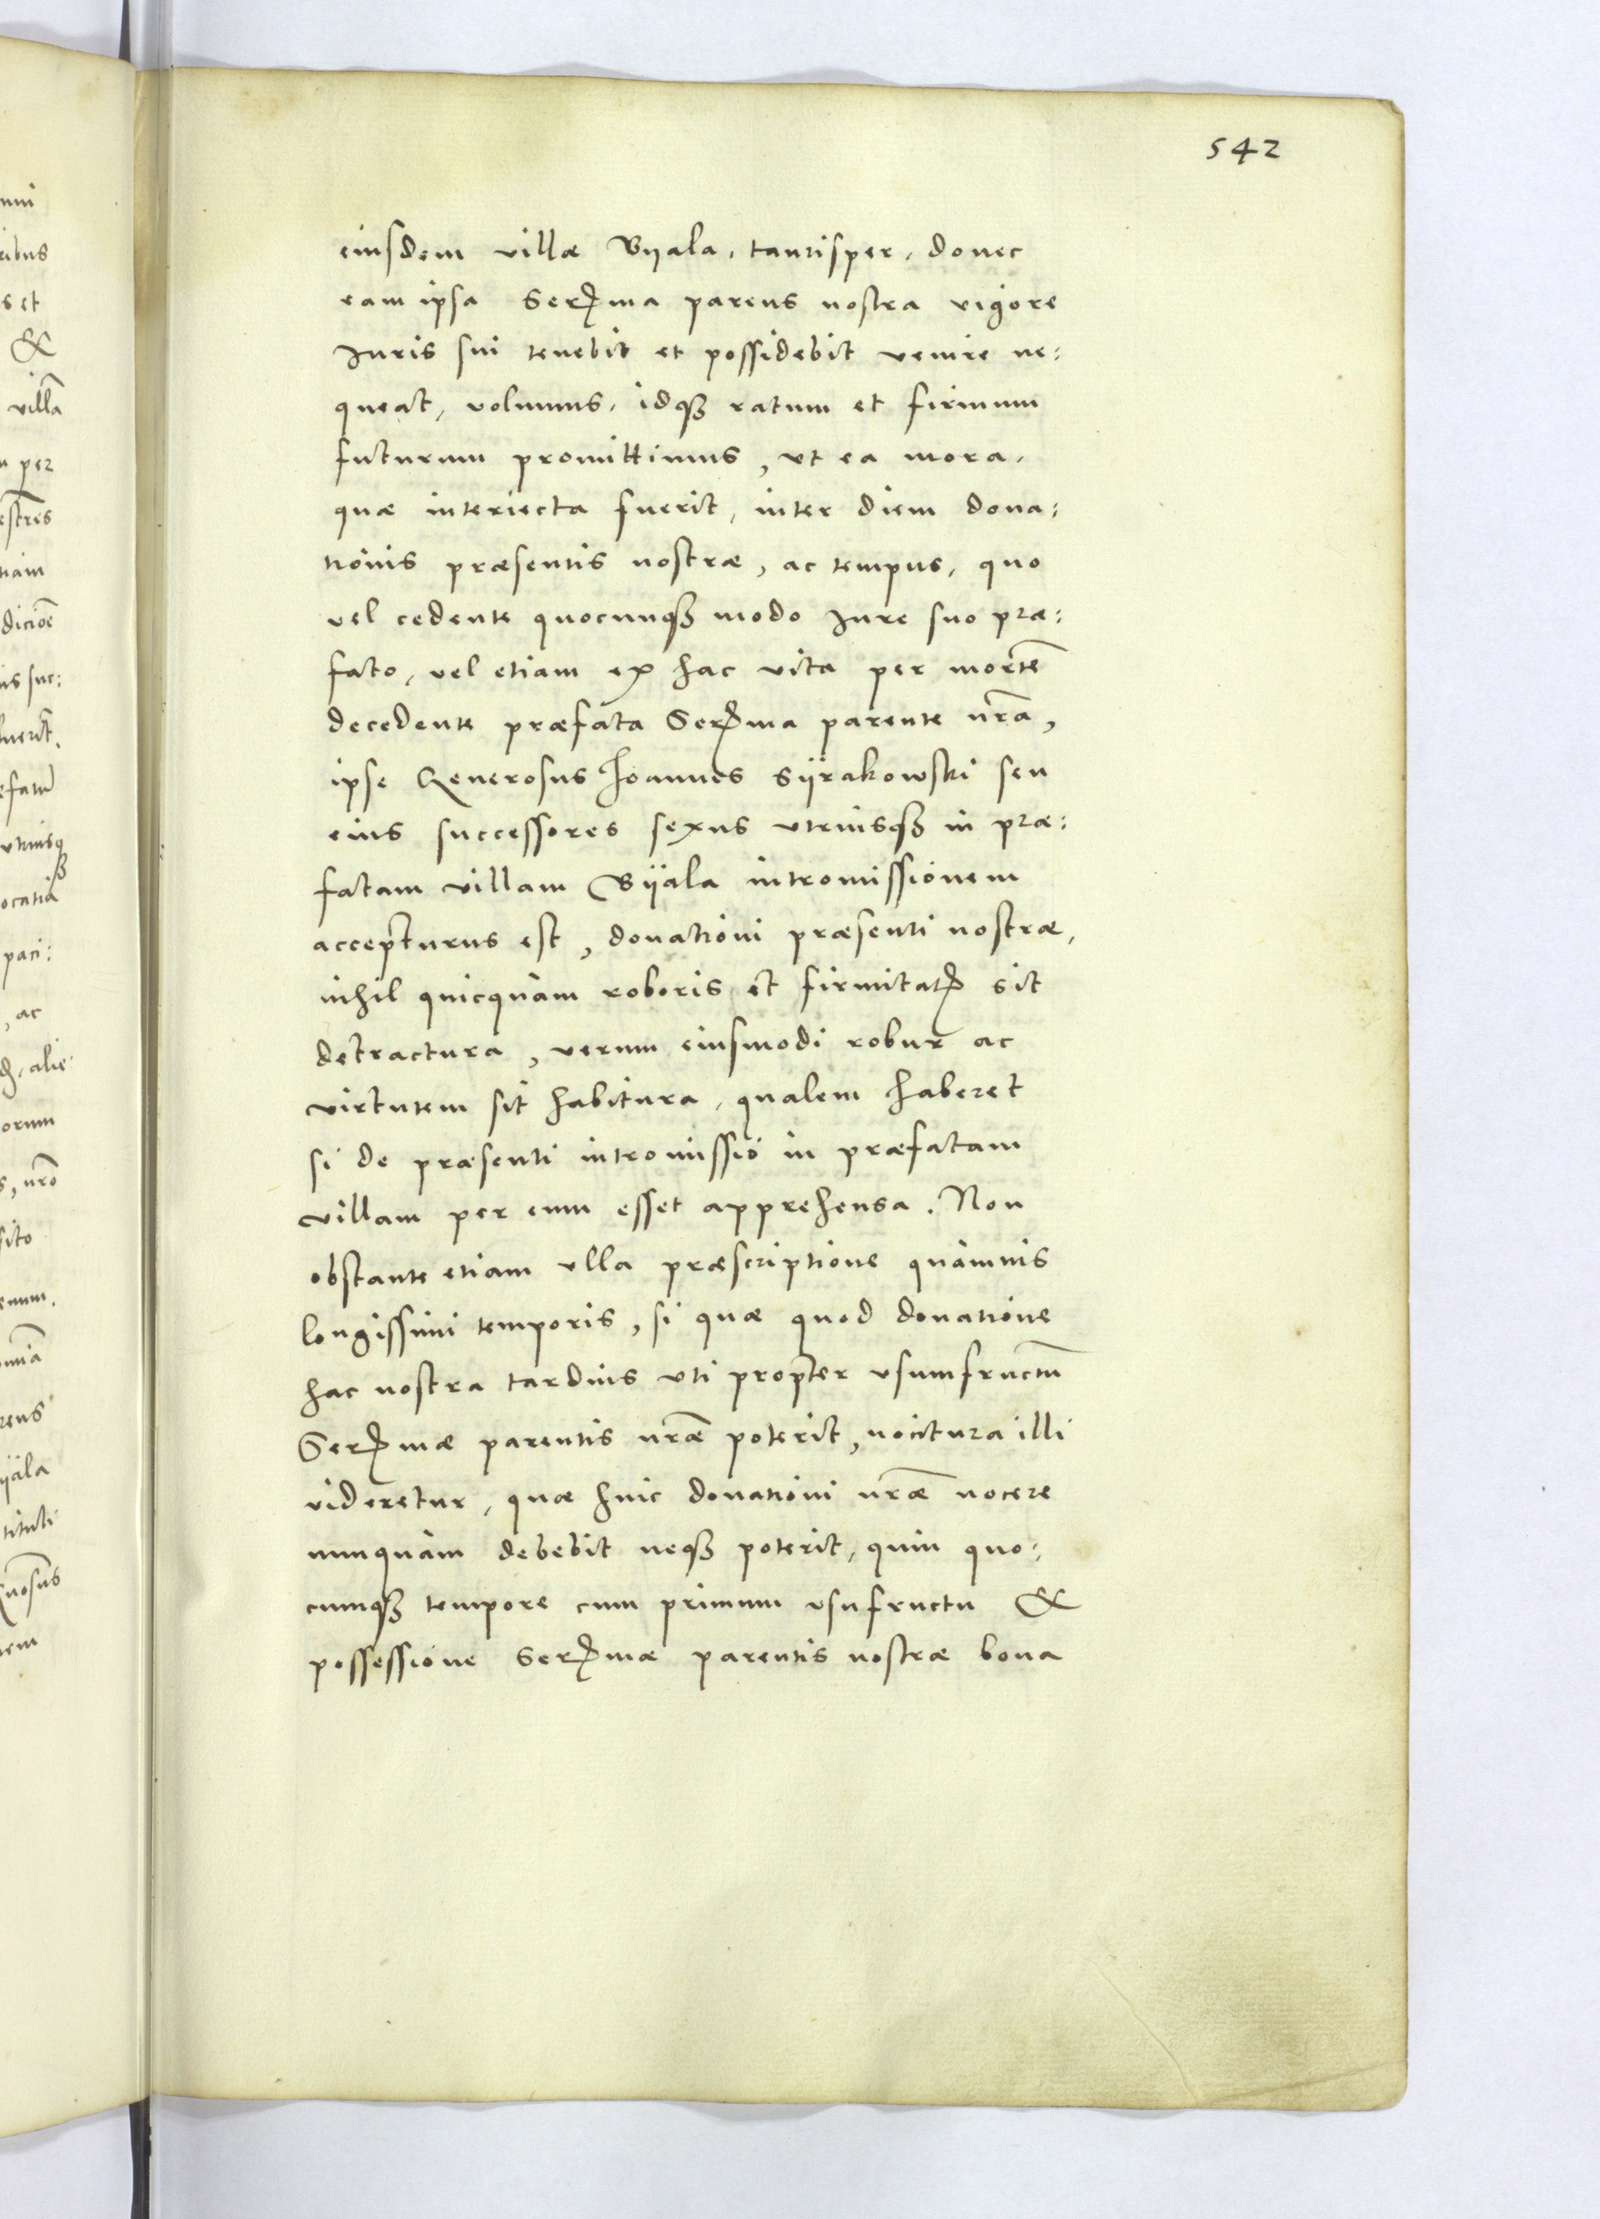 542
eiusdem villæ Byala, tantisper, donec
eam ipsa Serꝫma parens nostra vigore
Iuris sui tenebit et possidebit venire ne:
queat, volumus, idqꝫ ratum et firmum
futurum promittimus, vt ea mora,
quæ interiecta fuerit, inter diem dona:
tionis præsentis nostræ, ac tempus, quo
vel cedente quocunqꝫ modo Iure suo præ:
fato, vel etiam ex hac vita per mortē
decedente præfata Serꝫma parente nrā,
ipse Generosus Joannes Sÿrakowski seu
eius successores sexus vtriusqꝫ in præ:
fatam villam Bÿala intromissionem
accepturus est, donationi præsenti nostræ,
nihil quicquam roboris et firmitatꝭ sit
detractura, verum eiusmodi robur ac
virtutem sit habitura, qualem haberet
si de præsenti intromissio in præfatam
villam per eum esset apprehensa. Non
obstante etiam vlla præscriptione quamuis
longissimi temporis, si quæ quod donatione
hac nostra tardius vti propter vsumfructū
Serꝫmæ parentis nrǣ poterit, nocitura illi
videretur, quæ huic donationi nrǣ nocere
nunquam debebit neqꝫ poterit, quin quo:
cumqꝫ tempore cum primum vsufructu &
possessione Serꝫmæ parentis nostræ bona